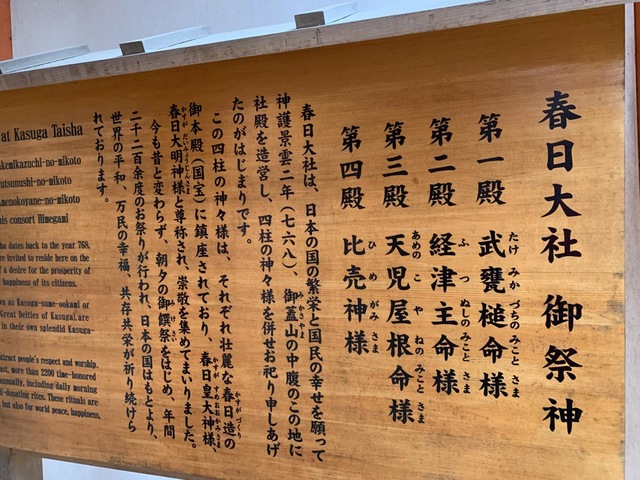 春日大社 御祭神
第一殿 武甕槌命様
たけ みか づちの みこと さま
第二殿 経津主命様
ふ つ ぬしの みこと さま
第三殿 天児屋根命様
あめの こ や ねの みこと さま
第四殿 比売神様
ひ め がみ さま
春日大社は、日本の国の繁栄と国民の幸せを願って
神護景雲二年(七六八)、御蓋山の中腹のこの地に
みかさやま
社殿を造営し、四柱の神々様を併せお祀り申しあげ
たのがはじまりです。
この四柱の神々様は、それぞれ壮麗な春日造の
かすがづくり
御本殿(国宝)に鎮座されており、春日皇大神様、
かすが すめおおかみさま
春日大明神様と尊称され、崇敬を集めてまいりました。
かすが だいみょうじんさま
今も昔と変わらず、朝夕の御饌祭をはじめ、年間
み けさい
二千二百余度のお祭りが行われ、日本の国はもとより、
世界の平和、万民の幸福、共存共栄が祈り続けら
れております。
at Kasuga Taisha
akemikazuchi-no-mikoto
utsunushi-no-mikoto
menokoyane-no-mikoto
his consort Himegami
ha dates back to the year 768,
re invited to reside here on the
f a desire for the prosperity of
happiness of its citizens.
wn as Kasuga-sume-ookami or
Great Deities of Kasuga), are
in their own splendid Kasuga-
ttract people's respect and worship.
ast, more than 2200 time-honored
annually, including daily morning
d-donating rites. These rituals are
but also for world peace, happiness,